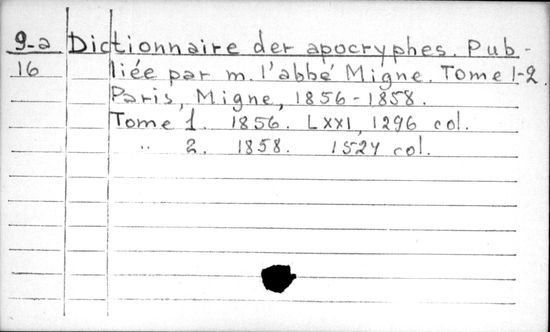 9-a Dictionnaire der apocryphes. Pub-
16 liée par m. l'abbé Migne. Tome 1-2.
Paris, Migne, 1856-1858.
Tome 1. 1856. LXXI, 1296 col.
" 2. 1858. 1524 col.